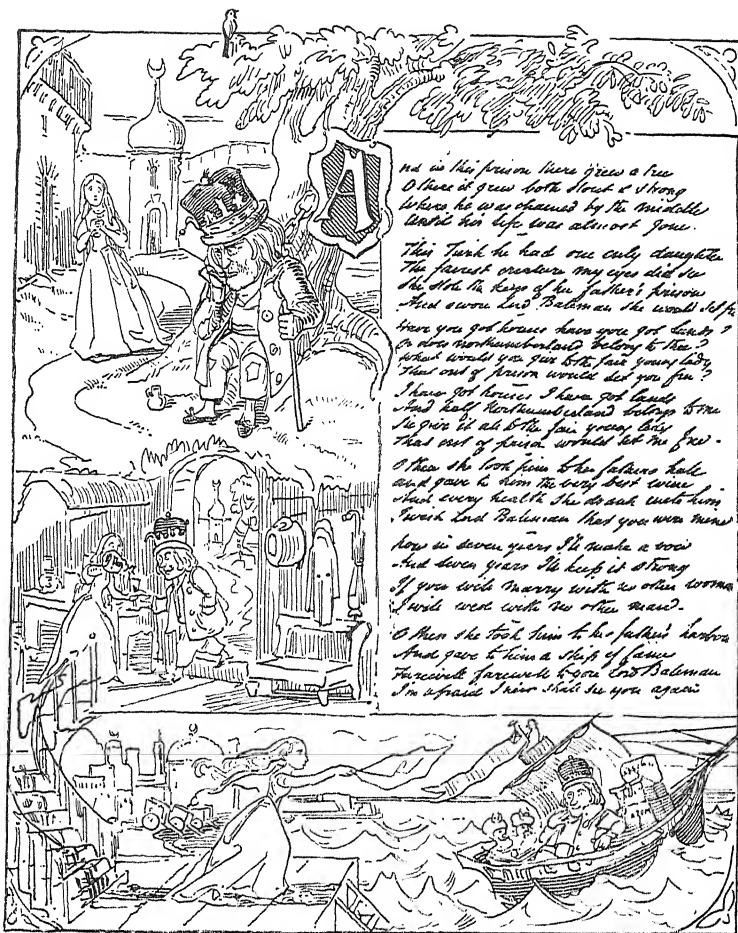 And in this prison there grew a tree
O there it grew both stout & strong
Where he was chained by the middle
Until his life was almost gone.
This Turk he had one only daughter
The fairest creature my eyes did see
She stole the keys of her father's prison
And swore Lord Bateman she would set free
Have you got houses have you got lands?
Or does Northumberland belong to thee?
What would you give to the fair young lady
That out of prison would set you free?
I have got houses I have got lands
And half Northumberland belongs to me
I'd give it all to the fair young lady
That out of prison would let me free.
O then she took him to her fathers hall
and gave to him the very best wine
And every health she drank unto him
I wish Lord Bateman that you were mine
Now in seven years I'll make a vow
And seven years I'll keep it strong
If you will marry with no other woman
I will wed with no other man.
O then she took him to her father's harbour
And gave to him a ship of fame
Farewell farewell to you Lord Bateman
I'm afraid I ne'er shall see you again